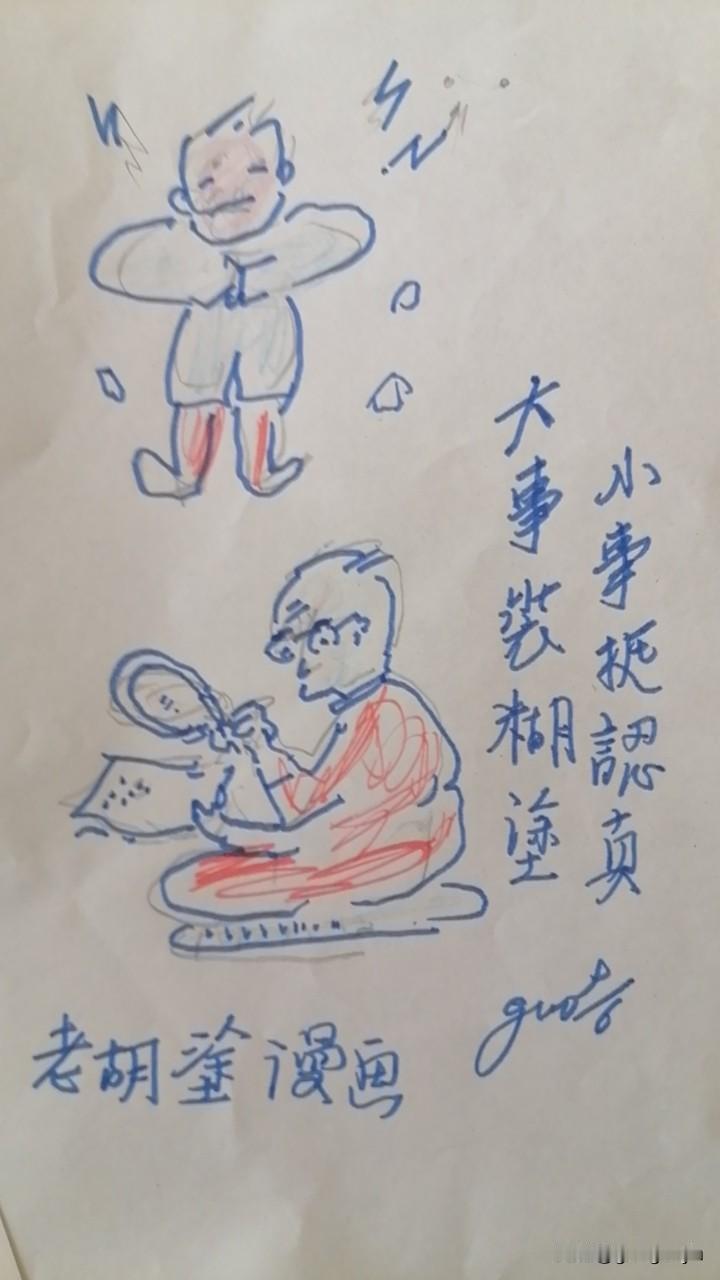 小事挺認真
大事装糊塗
老胡塗漫画